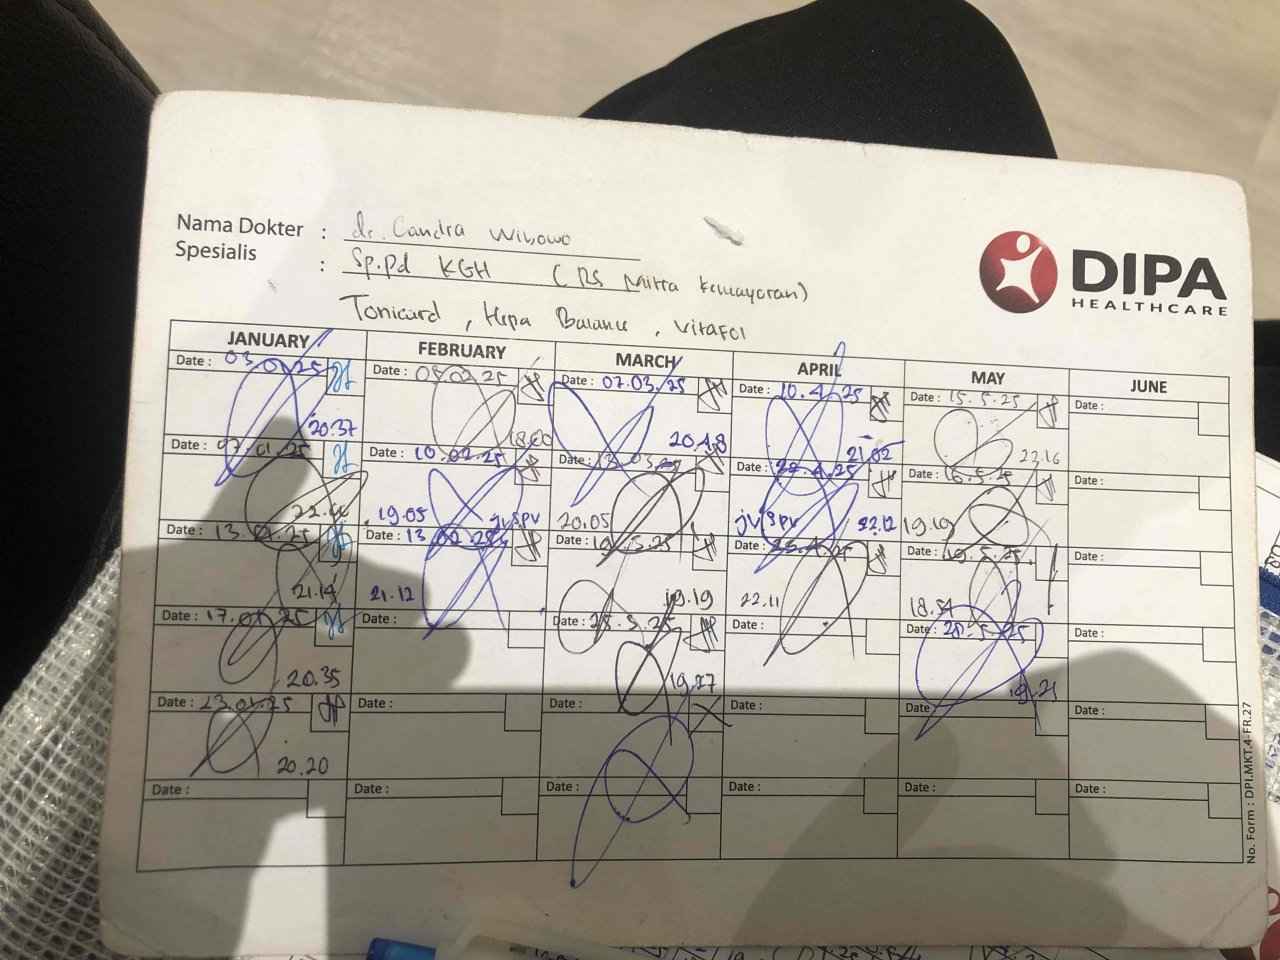 Nama Dokter : dr. Candra Wibowo
Spesialis : Sp.Pd KGH (RS Mitra Kemayoran)
Tonicard, Hepa Balance, Vitafol
DIPA
HEALTHCARE
JANUARY FEBRUARY MARCH APRIL MAY JUNE
Date : 03.01.25 Date : 05.02.25 Date : 07.03.25 Date : 10.4.25 Date : 15.5.25 Date :
20.37 18.00 20.48 21.02 22.16
Date : 07.01.25 Date : 10.02.25 Date : 13.03 Date : 22.4.25 Date : 16.5.25 Date :
19.05 jv spv 20.05 jv spv 22.12 19.19
Date : 13.01.25 Date : 13.02.25 Date : Date : 25.4.25 Date : 19.5.25 Date :
21.14 21.12 19.19 22.11 18.54
Date : 17.01.25 Date : Date : Date : Date : 28.5.25 Date :
20.35 19.27 19.21
Date : 23.01.25 Date : Date : Date : Date : Date :
20.20
Date : Date : Date : Date : Date :
No. Form : DPI.MKT.4-FR.27